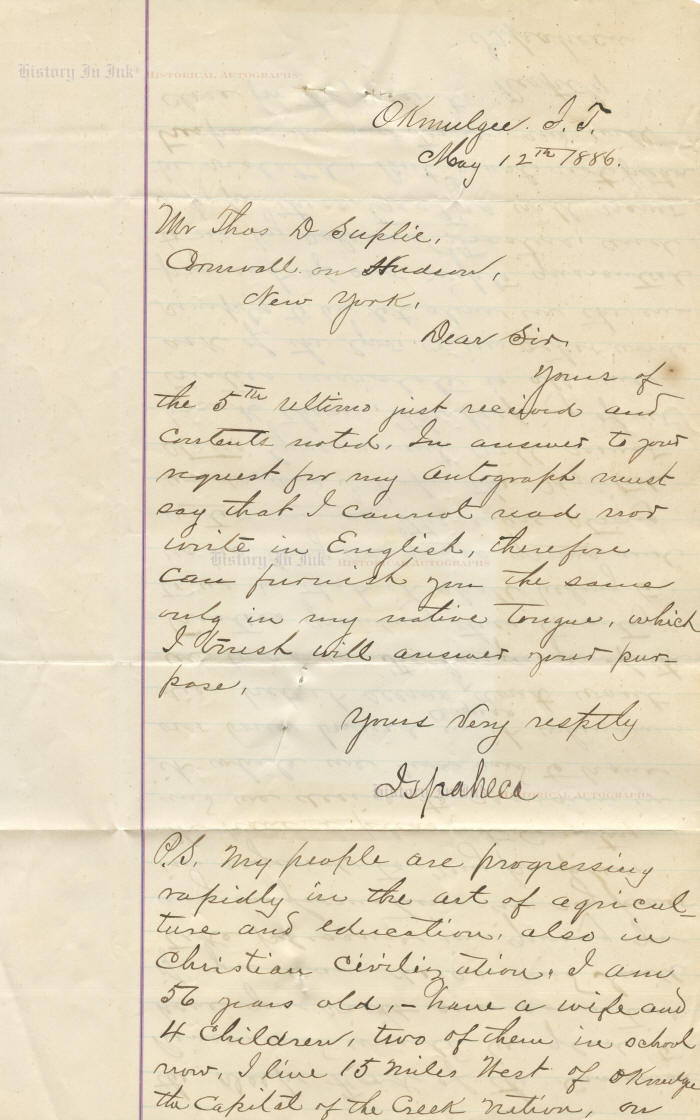 History In Ink® HISTORICAL AUTOGRAPHS
Okmulgee. I. T.
May 12th 1886.
Mr Thos D Suplie,
Cornwall on Hudson,
New York,
Dear Sir,
Yours of
the 5th ultimo just received and
contents noted. In answer to your
request for my autograph must
say that I cannot read nor
write in English, therefore
can furnish you the same
only in my native tongue, which
I trust will answer your pur-
pose,
Yours Very resptly
Ispaheca
P.S. My people are progressing
rapidly in the art of agricul-
ture and education, also in
Christian civilization. I am
56 years old, - have a wife and
4 children, two of them in school
now, I live 15 miles West of Okmulgee
the Capital of the Creek Nation, on